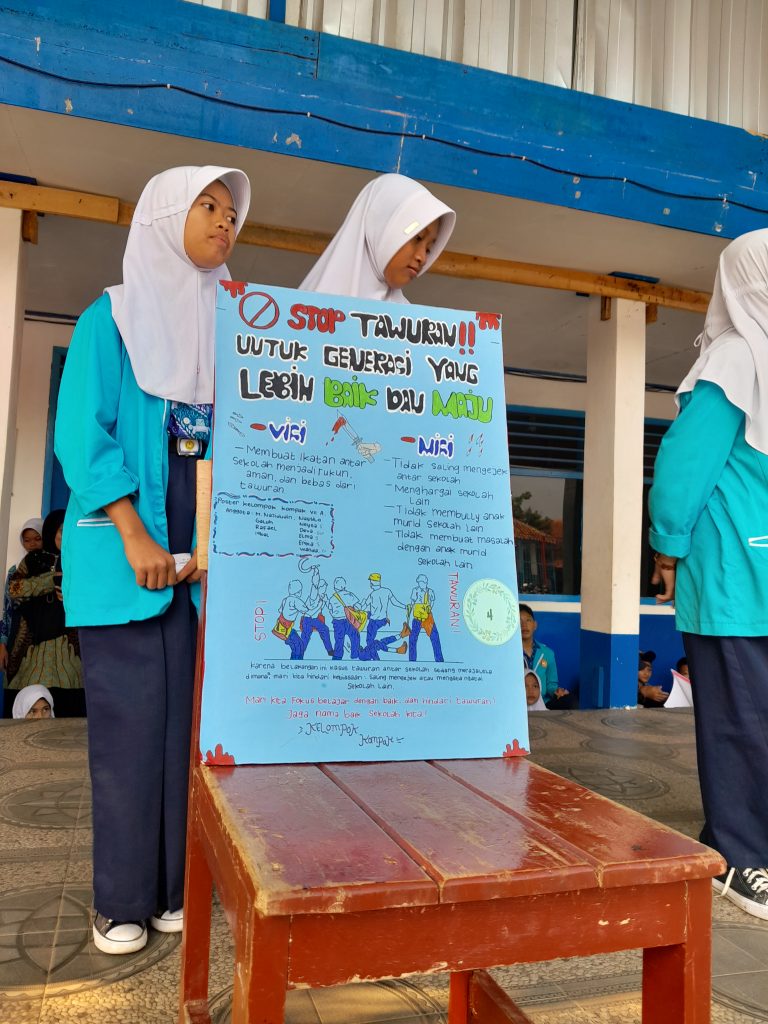 STOP TAWURAN!!
UNTUK GENERASI YANG
LEBIH BAIK DAN MAJU
-VISI
- Membuat Ikatan antar
sekolah menjadi rukun,
aman, dan bebas dari
tawuran
Poster kelompok kompak VII A
Anggota: M. Nazaudin
Galuh
Rafael
Iqbal
Nayla
Deva
Elma
Erika
Wanda
-MISI
- Tidak saling mengejek
antar sekolah
- Menghargai sekolah
lain
- Tidak membully anak
murid sekolah lain
- Tidak membuat masalah
dengan anak murid
sekolah lain
STOP!
TAWURAN!
4
karena belakangan ini kasus tawuran antar sekolah sedang merajalela
dimana², mari kita hindari kebiasaan saling mengejek atau mengata ngatai
sekolah lain.
Mari kita fokus belajar dengan baik, dan hindari tawuran!
Jaga nama baik sekolah kita!
KELOMPOK
Kompak